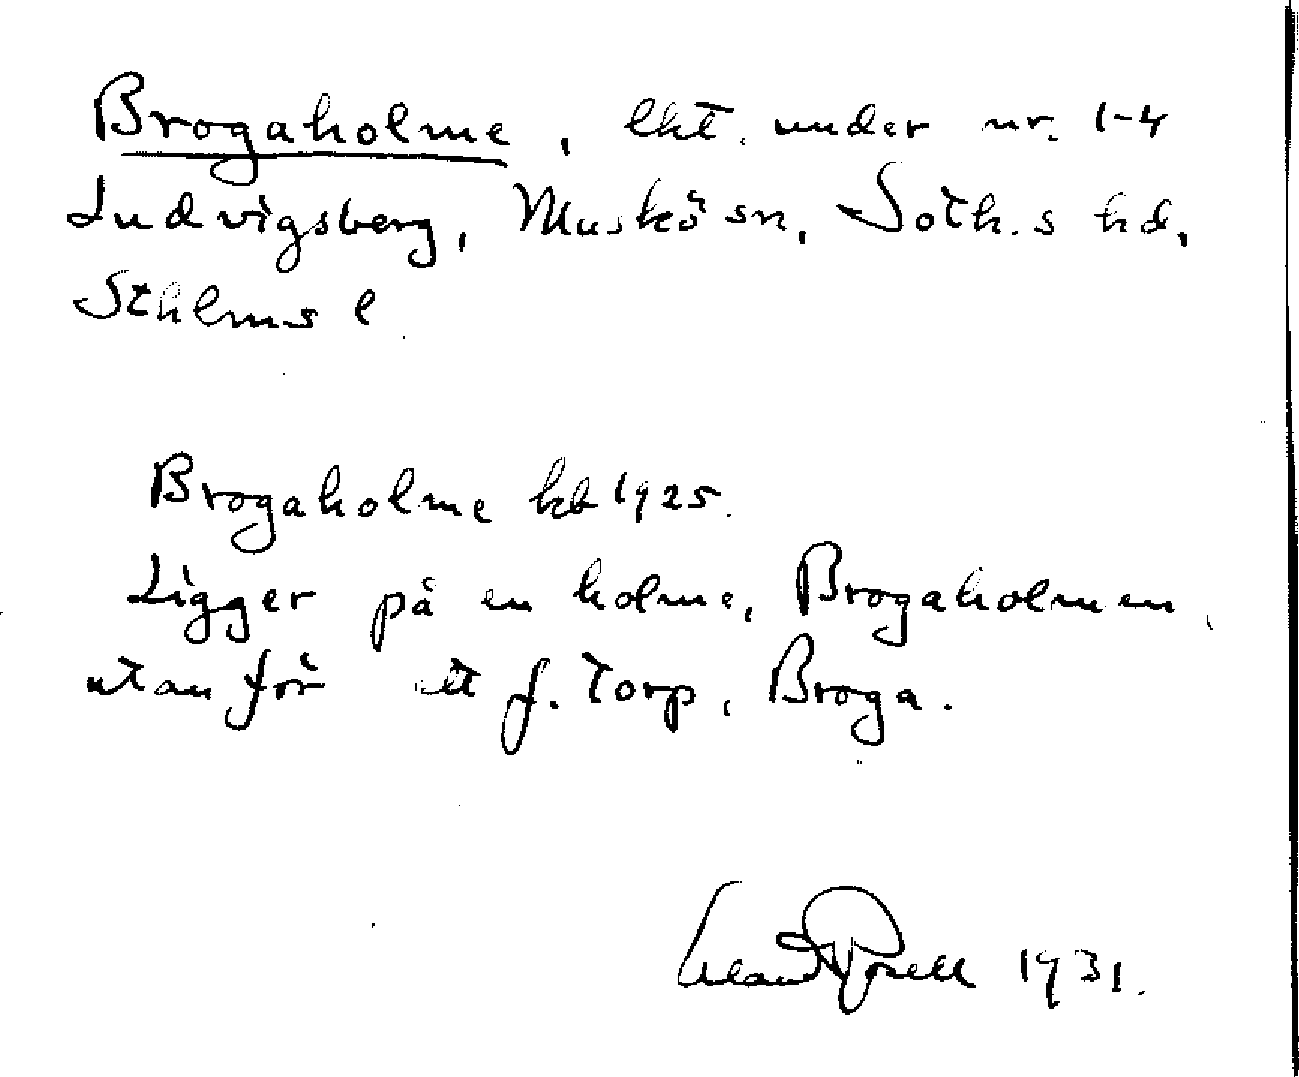 Brogaholme, lht. under nr. 1-4
Ludvigsberg, Muskö sn, Soth.s hd,
Sthlms l
Brogaholme kb 1925.
Ligger på en holme, Brogaholmen,
utanför ett f. torp, Broga.
1931.